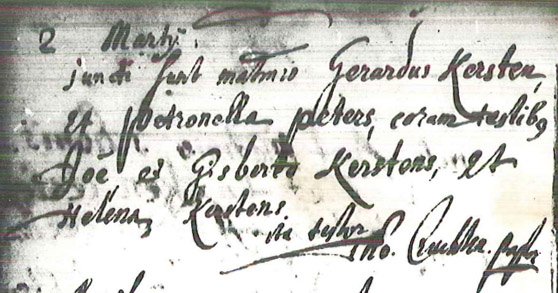 2 Martÿ
juncti sunt matmio Gerardus Kersten,
et petronella peters, coram testibq
Joe et Gisberto Kerstens, et
Helena Kerstens
ita testor
Tho.